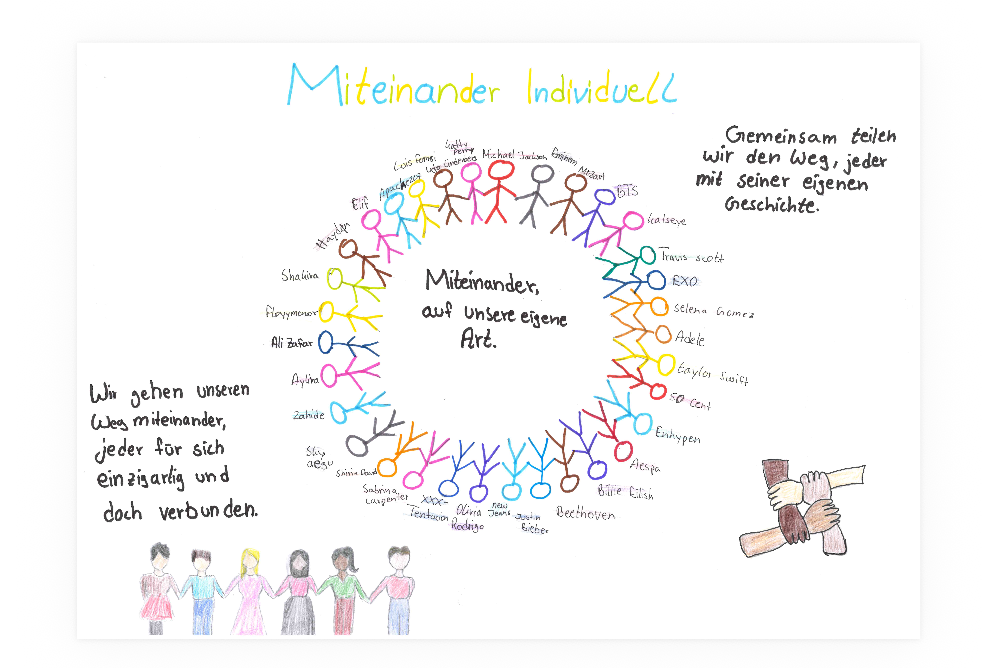 Miteinander Individuell
Gemeinsam teilen
wir den Weg, jeder
mit seiner eigenen
Geschichte.
Katy
Perry
Michael Jackson
Eminem
BTS
Katseye
Travis scott
EXO
Selena Gomez
Adele
taylor Swift
50 cent
Enhypen
Aespa
Billie Eilish
Beethoven
Justin
Bieber
new
Jeans
Olivia
Rodrigo
XXX-
Tentacion
Sabrina
carpenter
Zahide
Aylina
Ali Zafar
Floyymenor
Shakira
Hayden
Elif
Apache207
Luis Fonsi
Miteinander,
auf unsere eigene
Art.
Wir gehen unseren
Weg miteinander,
jeder für sich
einzigartig und
doch verbunden.